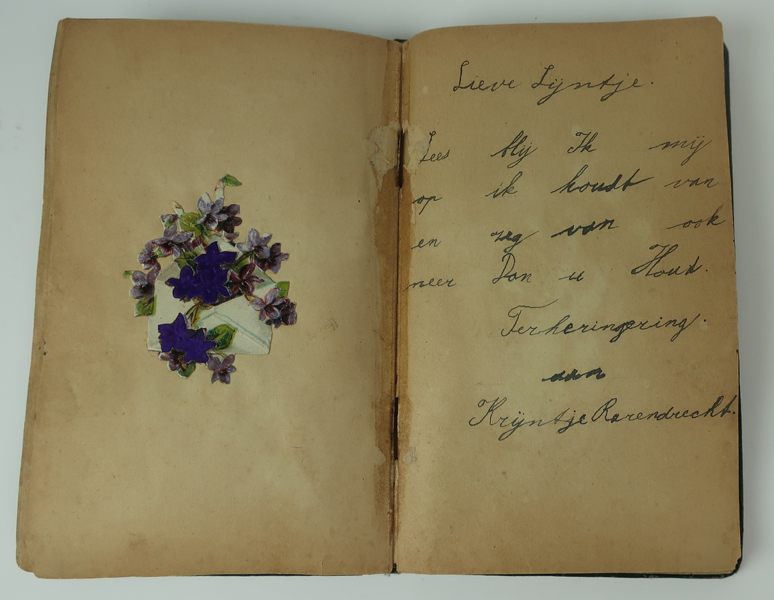 Lieve Lijntje.
Lees blij Ik mij
op ik houdt van
en zeg van ook
neer Dan u Houd.
Terheringering.
aan
Krijntje Barendrecht.